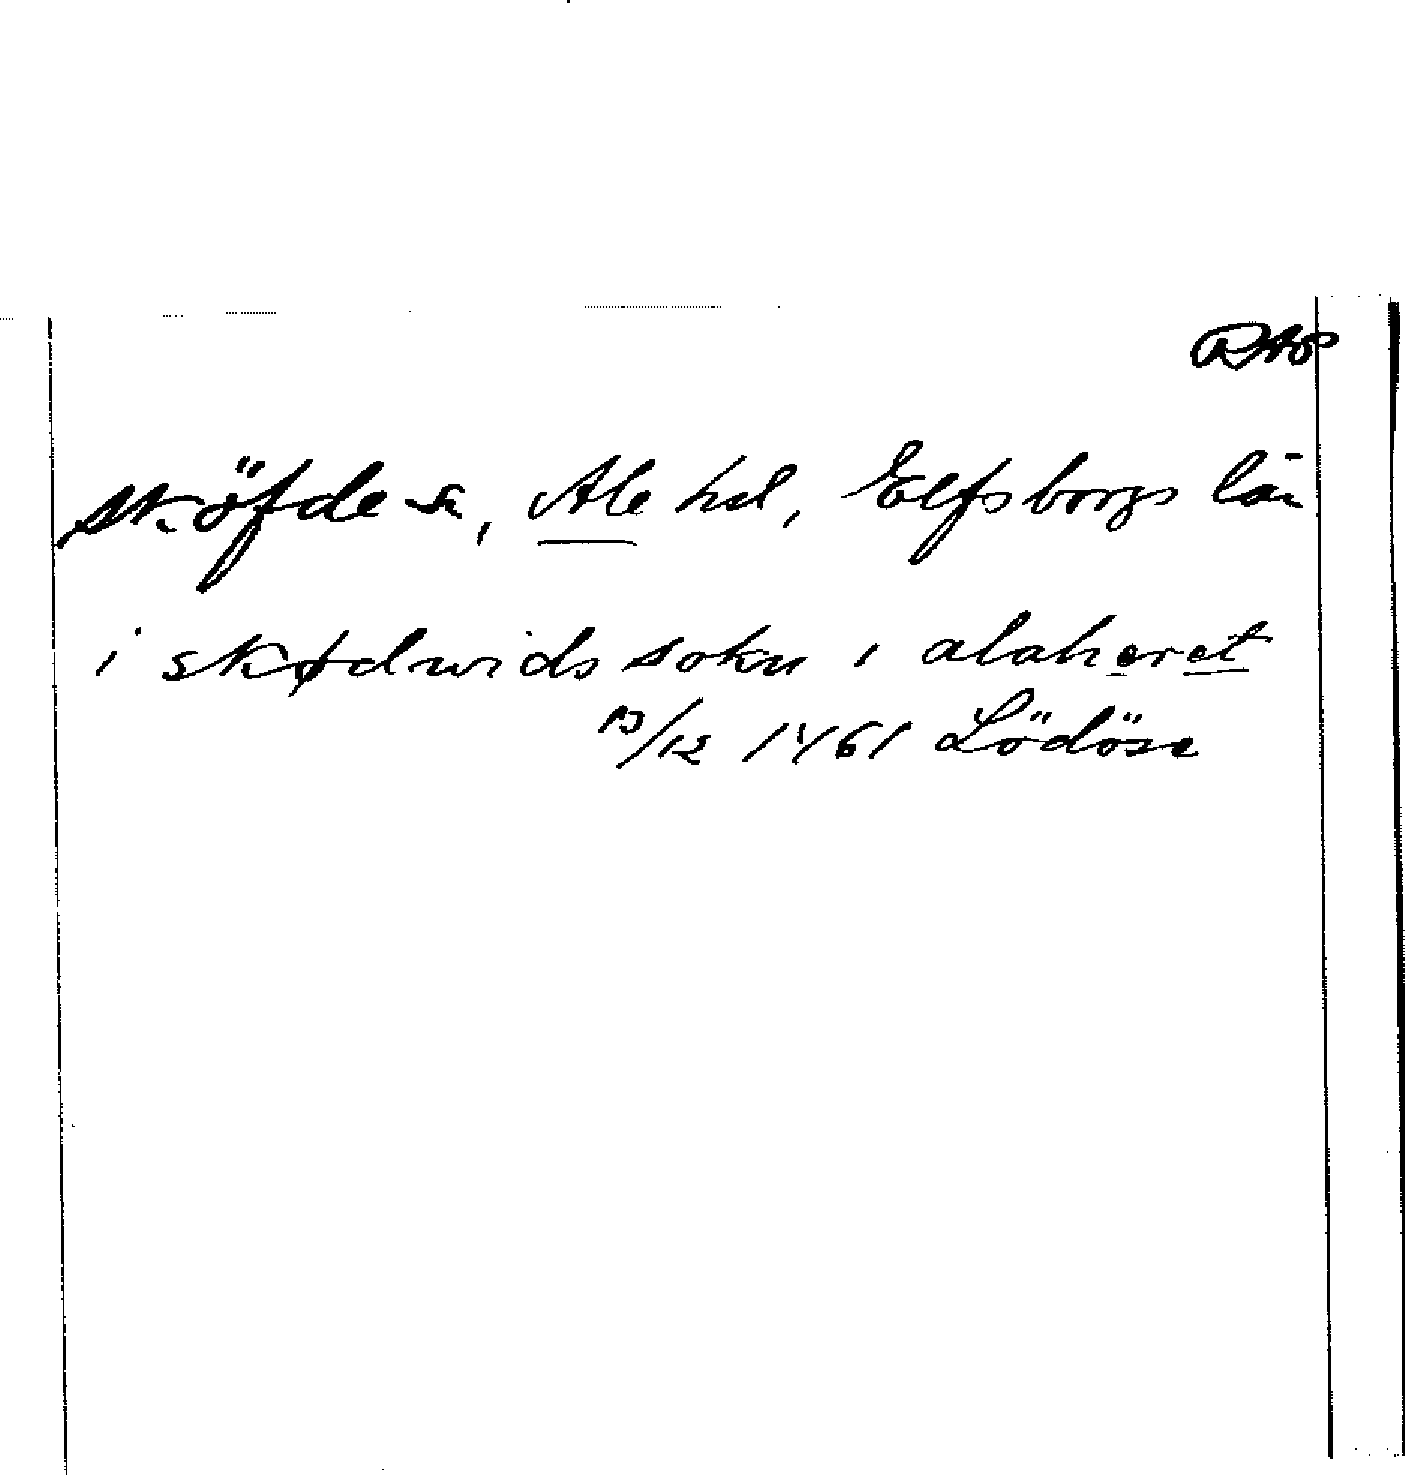 RAP
Sköfde sn, Ale hd, Elfsborgs län
i skødwids sokn i alaheret
13/12 1461 Lödöse